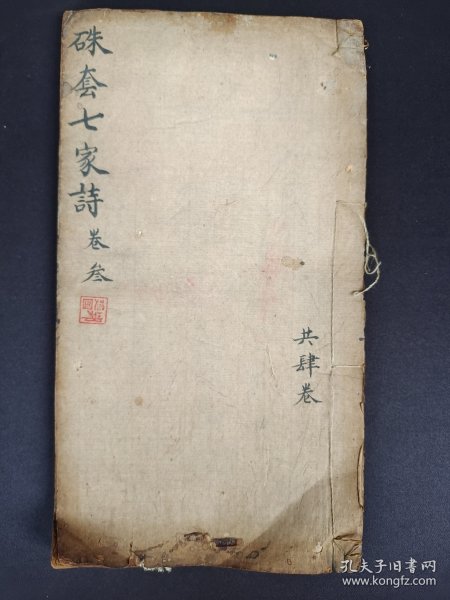 硃套七家詩 卷叁
共肆卷
孔夫子旧书网
www.kongfz.com